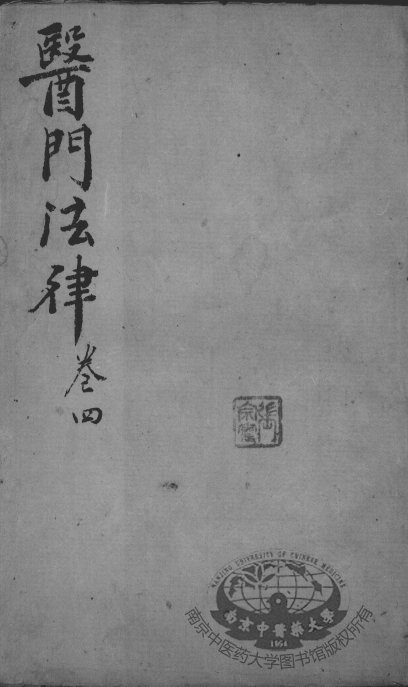 醫門法律
卷四
NANJING UNIVERSITY OF CHINESE MEDICINE
南京中醫藥大學
1954
南京中医药大学图书馆版权所有